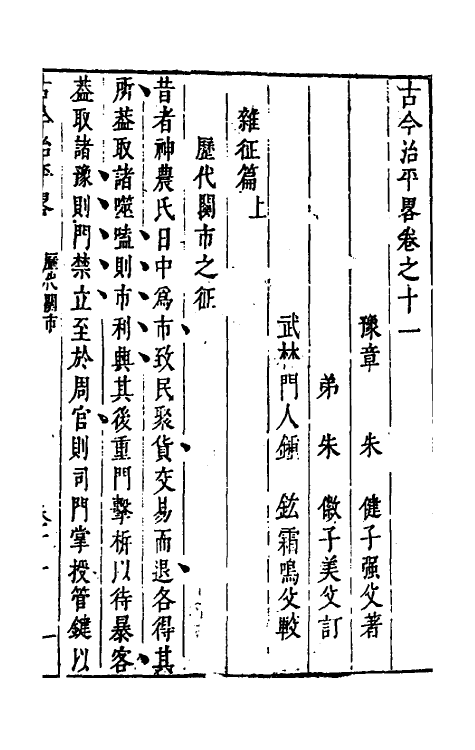 古今治平畧卷之十一
豫章 朱 健子强父著
弟 朱 㣲子美父訂
武林門人鍾 鉉霜鳴父較
雜征篇上
歷代關市之征
昔者神農氏日中爲市致民聚貨交易而退各得其
所葢取諸噬嗑則市利典其後重門擊柝以待暴客
葢取諸豫則門禁立至於周官則司門掌授管鍵以
古今治平畧
歷代關市
卷十一
一